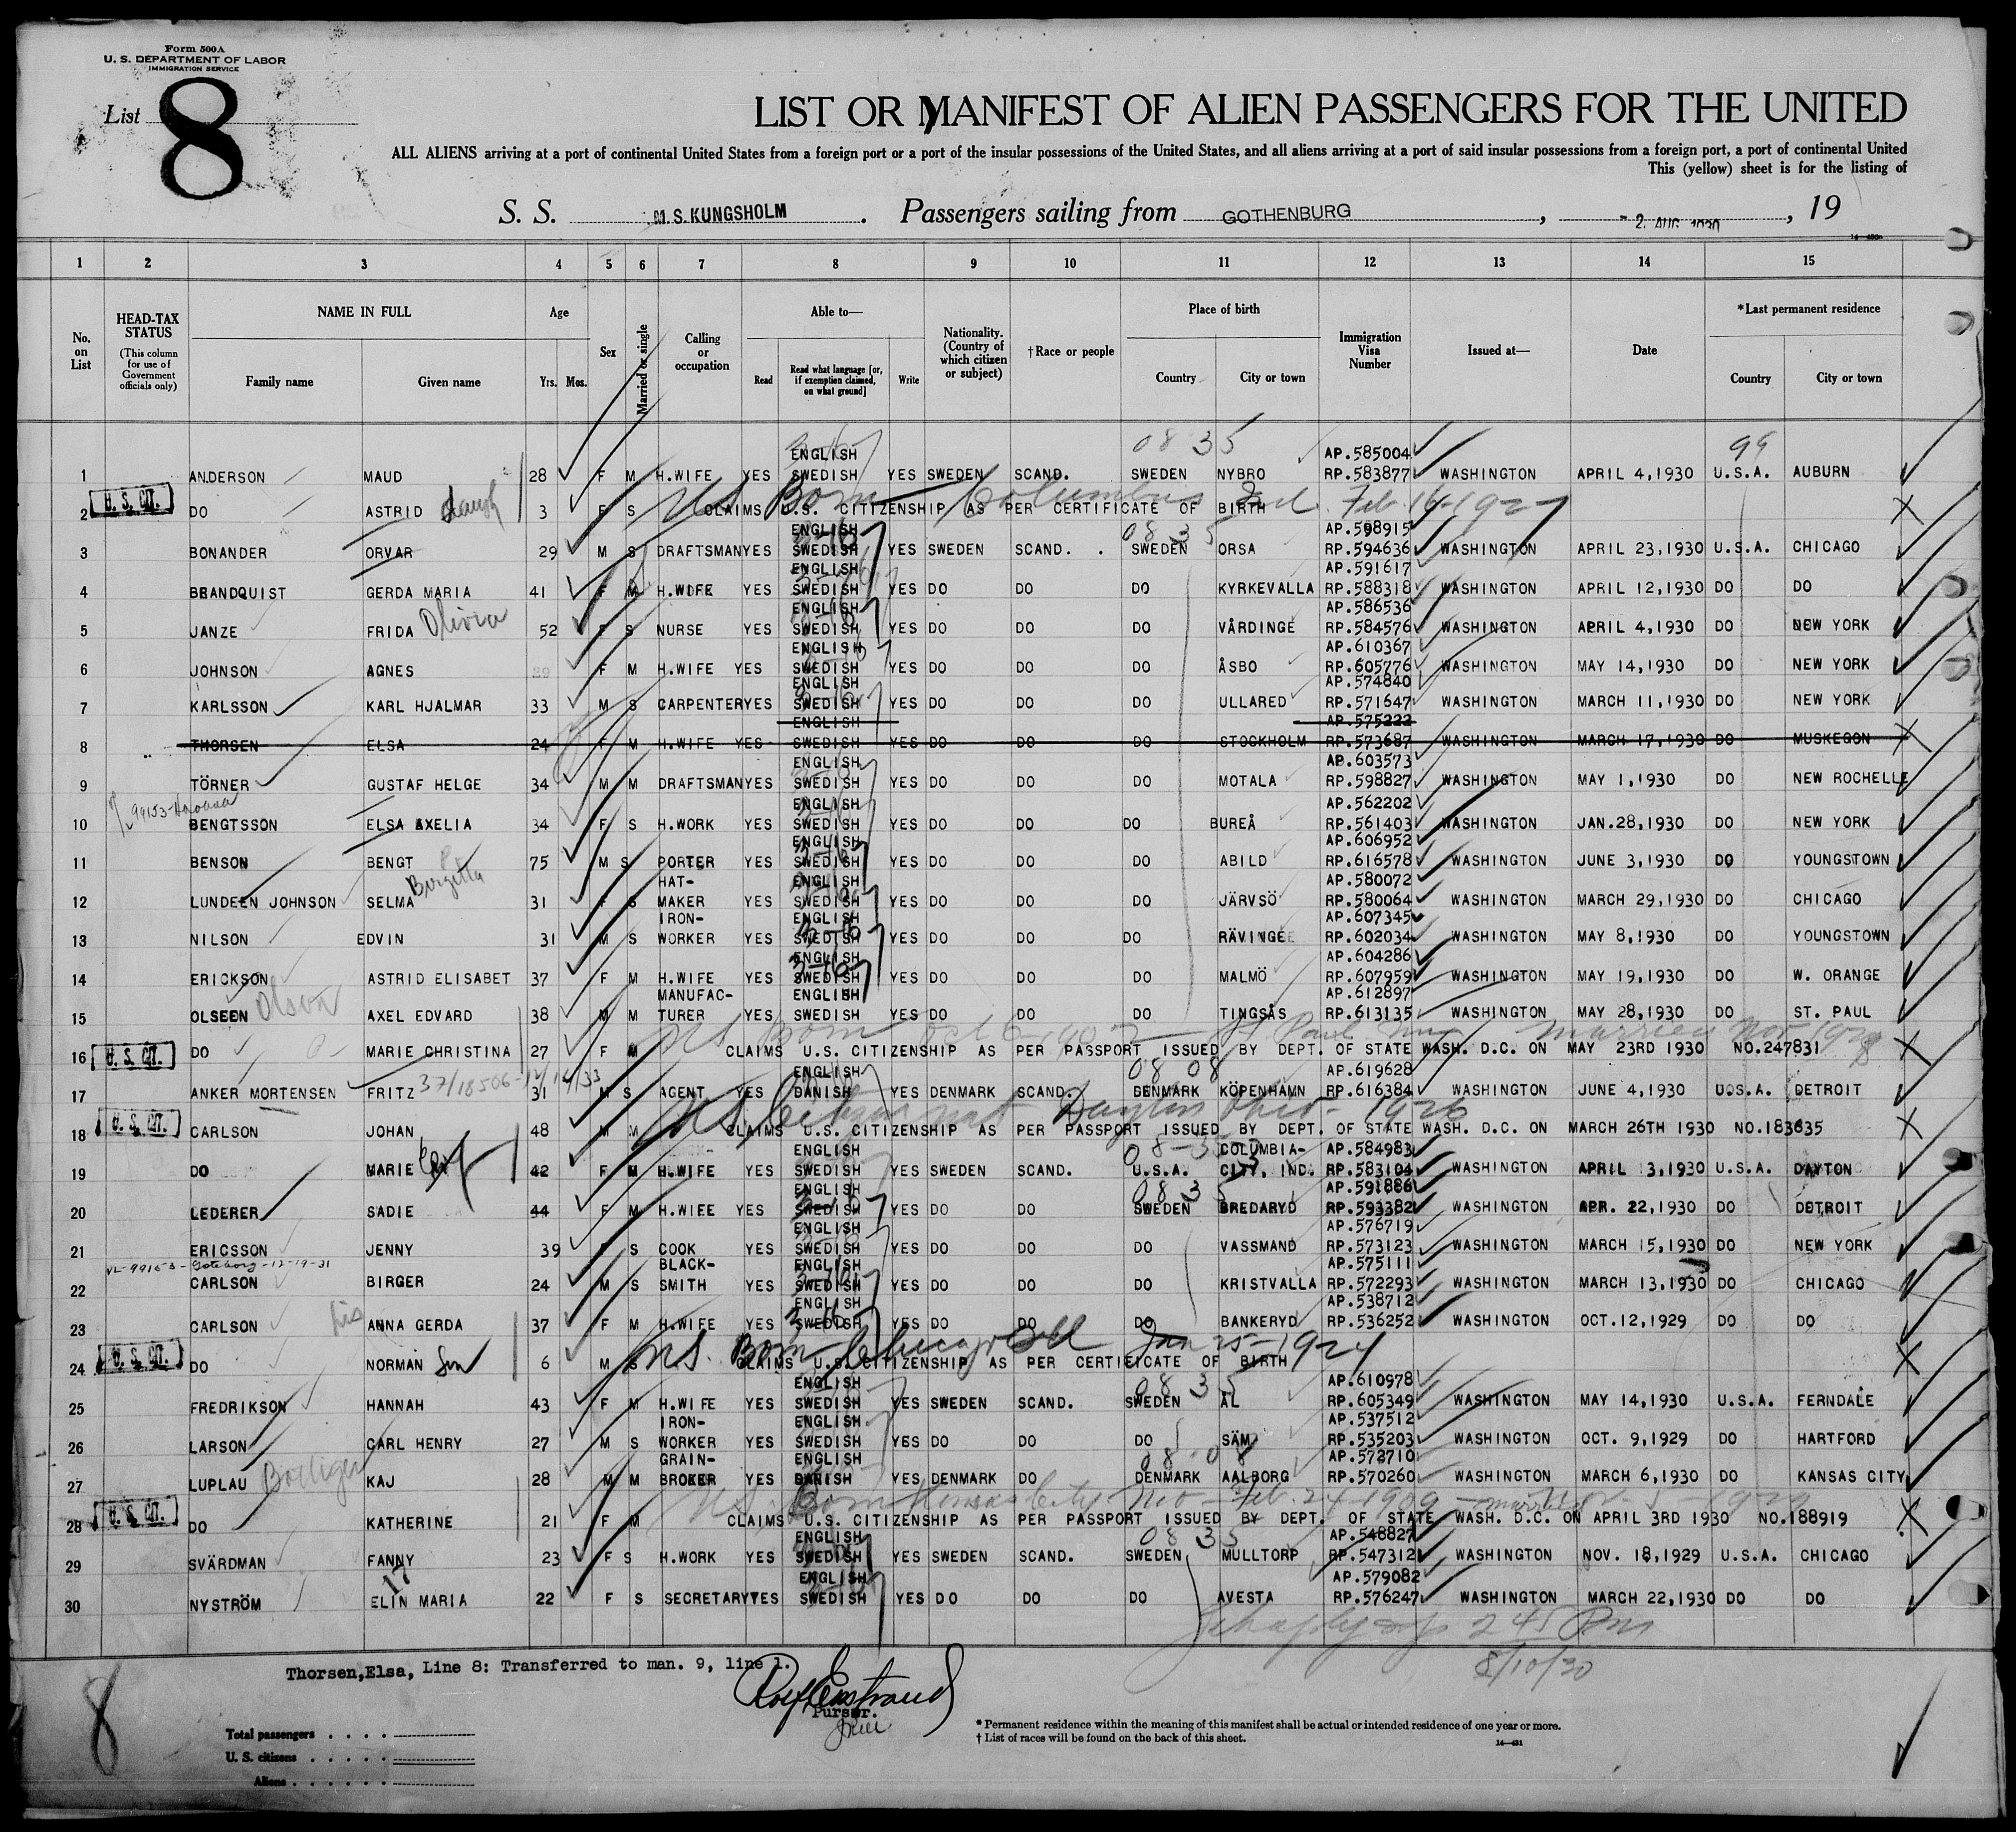 Form 500A
U. S. DEPARTMENT OF LABOR
IMMIGRATION SERVICE
List 8
LIST OR MANIFEST OF ALIEN PASSENGERS FOR THE UNITED
ALL ALIENS arriving at a port of continental United States from a foreign port or a port of the insular possessions of the United States, and all aliens arriving at a port of said insular possessions from a foreign port, a port of continental United
This (yellow) sheet is for the listing of
S. S. M.S. KUNGSHOLM. Passengers sailing from GOTHENBURG, -2. AUG 1930, 19
14—430
1 2 3 4 5 6 7 8 9 10 11 12 13 14 15
No. on List
HEAD-TAX STATUS
(This column for use of Government officials only)
NAME IN FULL
Family name
Given name
Age
Yrs. Mos.
Sex
Married or single
Calling or occupation
Able to—
Read
Read what language [or, if exemption claimed, on what ground]
Write
Nationality. (Country of which citizen or subject)
†Race or people
Place of birth
Country
City or town
Immigration Visa Number
Issued at—
Date
*Last permanent residence
Country
City or town
08 35 99
ENGLISH AP.585004
1 ANDERSON MAUD 28 F M H.WIFE YES SWEDISH YES SWEDEN SCAND. SWEDEN NYBRO RP.583877 WASHINGTON APRIL 4,1930 U.S.A. AUBURN
US Born Columbus Feb. 16-1927
2 U. S. CIT. DO ASTRID daugh 3 F S CLAIMS U.S. CITIZENSHIP AS PER CERTIFICATE OF BIRTH
ENGLISH 08 35 AP.598915
3 BONANDER ORVAR 29 M S DRAFTSMAN YES SWEDISH YES SWEDEN SCAND. SWEDEN ORSA RP.594636 WASHINGTON APRIL 23,1930 U.S.A. CHICAGO
ENGLISH AP.591617
4 BRANDQUIST GERDA MARIA 41 F M H.WIFE YES SWEDISH YES DO DO DO KYRKEVALLA RP.588318 WASHINGTON APRIL 12,1930 DO DO
ENGLISH AP.586536
5 JANZE FRIDA Olivia 52 F S NURSE YES SWEDISH YES DO DO DO VÅRDINGE RP.584576 WASHINGTON APRIL 4,1930 DO NEW YORK
ENGLISH AP.610367
6 JOHNSON AGNES F M H.WIFE YES SWEDISH YES DO DO DO ÅSBO RP.605776 WASHINGTON MAY 14,1930 DO NEW YORK
ENGLISH AP.574840
7 KARLSSON KARL HJALMAR 33 M S CARPENTER YES SWEDISH YES DO DO DO ULLARED RP.571647 WASHINGTON MARCH 11,1930 DO NEW YORK
ENGLISH AP.575222
8 THORSEN ELSA 24 F M H.WIFE YES SWEDISH YES DO DO DO STOCKHOLM RP.573687 WASHINGTON MARCH 17,1930 DO MUSKEGON
ENGLISH AP.603573
9 TÖRNER GUSTAF HELGE 34 M M DRAFTSMAN YES SWEDISH YES DO DO DO MOTALA RP.598827 WASHINGTON MAY 1,1930 DO NEW ROCHELLE
99153 ENGLISH AP.562202
10 BENGTSSON ELSA AXELIA 34 F S H.WORK YES SWEDISH YES DO DO DO BUREÅ RP.561403 WASHINGTON JAN.28,1930 DO NEW YORK
ENGLISH AP.606952
11 BENSON BENGT 75 M S PORTER YES SWEDISH YES DO DO DO ABILD RP.616578 WASHINGTON JUNE 3,1930 DO YOUNGSTOWN
Birgitta HAT- ENGLISH AP.580072
12 LUNDEEN JOHNSON SELMA 31 F S MAKER YES SWEDISH YES DO DO DO JÄRVSÖ RP.580064 WASHINGTON MARCH 29,1930 DO CHICAGO
IRON- ENGLISH AP.607345
13 NILSON EDVIN 31 M S WORKER YES SWEDISH YES DO DO DO RÄVINGE RP.602034 WASHINGTON MAY 8,1930 DO YOUNGSTOWN
ENGLISH AP.604286
14 ERICKSON ASTRID ELISABET 37 F M H.WIFE YES SWEDISH YES DO DO DO MALMÖ RP.607959 WASHINGTON MAY 19,1930 DO W. ORANGE
MANUFAC- ENGLISH AP.612897
15 OLSEEN Olson AXEL EDVARD 38 M M TURER YES SWEDISH YES DO DO DO TINGSÅS RP.613135 WASHINGTON MAY 28,1930 DO ST. PAUL
US Born Oct 6-1902 - St. Paul Minn married Nov 1928
16 U. S. CIT. DO MARIE CHRISTINA 27 F M CLAIMS U.S. CITIZENSHIP AS PER PASSPORT ISSUED BY DEPT. OF STATE WASH. D.C. ON MAY 23RD 1930 NO.247831
ENGLISH 08 08 AP.619628
17 ANKER MORTENSEN FRITZ 37/18506-12/14/33 31 M S AGENT YES DANISH YES DENMARK SCAND. DENMARK KÖPENHAMN RP.616384 WASHINGTON JUNE 4,1930 U.S.A. DETROIT
US Citizen nat Dayton Ohio - 1926
18 U. S. CIT. CARLSON JOHAN 48 M M CLAIMS U.S. CITIZENSHIP AS PER PASSPORT ISSUED BY DEPT. OF STATE WASH. D.C. ON MARCH 26TH 1930 NO.183635
ENGLISH 08-35 COLUMBIA- AP.584983
19 DO MARIE 42 F M H.WIFE YES SWEDISH YES SWEDEN SCAND. U.S.A. CITY, IND. RP.583104 WASHINGTON APRIL 3,1930 U.S.A. DAYTON
ENGLISH 08 35 AP.591886
20 LEDERER SADIE 44 F M H.WIFE YES SWEDISH YES DO DO SWEDEN BREDARYD RP.593382 WASHINGTON APR. 22,1930 DO DETROIT
ENGLISH AP.576719
21 ERICSSON JENNY 39 F S COOK YES SWEDISH YES DO DO DO VASSMAND RP.573123 WASHINGTON MARCH 15,1930 DO NEW YORK
VL-99153-Goteborg-12-19-31 BLACK- ENGLISH AP.575111
22 CARLSON BIRGER 24 M S SMITH YES SWEDISH YES DO DO DO KRISTVALLA RP.572293 WASHINGTON MARCH 13,1930 DO CHICAGO
ENGLISH AP.538712
23 CARLSON ANNA GERDA 37 F M H.WIFE YES SWEDISH YES DO DO DO BANKERYD RP.536252 WASHINGTON OCT.12,1929 DO DO
US. Born Chicago Ill Jan 25-1924
24 U. S. CIT. DO NORMAN Son 6 M S CLAIMS U.S. CITIZENSHIP AS PER CERTIFICATE OF BIRTH
ENGLISH 08 35 AP.610978
25 FREDRIKSON HANNAH 43 F M H.WIFE YES SWEDISH YES SWEDEN SCAND. SWEDEN ÅL RP.605349 WASHINGTON MAY 14,1930 U.S.A. FERNDALE
IRON- ENGLISH AP.537512
26 LARSON CARL HENRY 27 M S WORKER YES SWEDISH YES DO DO DO SÄM RP.535203 WASHINGTON OCT. 9,1929 DO HARTFORD
GRAIN- ENGLISH 08-08 AP.572710
27 LUPLAU KAJ 28 M M BROKER YES DANISH YES DENMARK DO DENMARK AALBORG RP.570260 WASHINGTON MARCH 6,1930 DO KANSAS CITY
US Born Kansas City Mo - Feb. 24-1909 - married
28 U. S. CIT. DO KATHERINE 21 F M CLAIMS U.S. CITIZENSHIP AS PER PASSPORT ISSUED BY DEPT. OF STATE WASH. D.C. ON APRIL 3RD 1930 NO.188919
ENGLISH 08 35 AP.548827
29 SVÄRDMAN FANNY 23 F S H.WORK YES SWEDISH YES SWEDEN SCAND. SWEDEN MULLTORP RP.547312 WASHINGTON NOV. 18,1929 U.S.A. CHICAGO
17 ENGLISH AP.579082
30 NYSTRÖM ELIN MARIA 22 F S SECRETARY YES SWEDISH YES DO DO DO AVESTA RP.576247 WASHINGTON MARCH 22,1930 DO DO
245 Pm
8/10/30
Thorsen,Elsa, Line 8: Transferred to man. 9, line 1.
Purser.
8
Total passengers
U. S. citizens
Aliens
* Permanent residence within the meaning of this manifest shall be actual or intended residence of one year or more.
† List of races will be found on the back of this sheet.
14—431